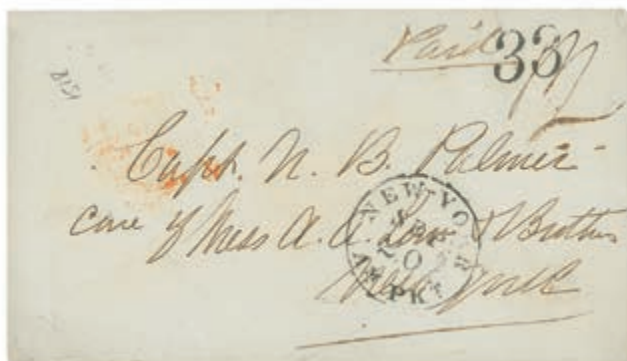 Paid 33
Capt. N. B. Palmer
care of Mess A. A. Low & Brothers
New York
NEW YORK
AM. PKT.